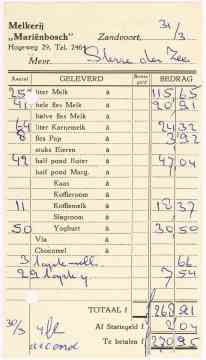 Melkerij
„Mariënbosch”
Hogeweg 29, Tel. 2464
Zandvoort, 31/3
Mevr. Sterre der Zee
Aantal GELEVERD BEDRAG
25 liter Melk à 115,65
41 hele fles Melk à 20,91
halve fles Melk à
64 liter Karnemelk à 24,32
8 fles Pap à 3,92
stuks Eieren à
49 half pond Boter à 47,04
half pond Marg. à
Kaas à
Koffieroom à
11 Koffiemelk à 18,37
Slagroom à
50 Yoghurt à 30,50
Vla à
Chocomel à
3 66
29 7,54
TOTAAL f 268,91
Af Statiegeld f 2,04
Te betalen f 270,95
30/3